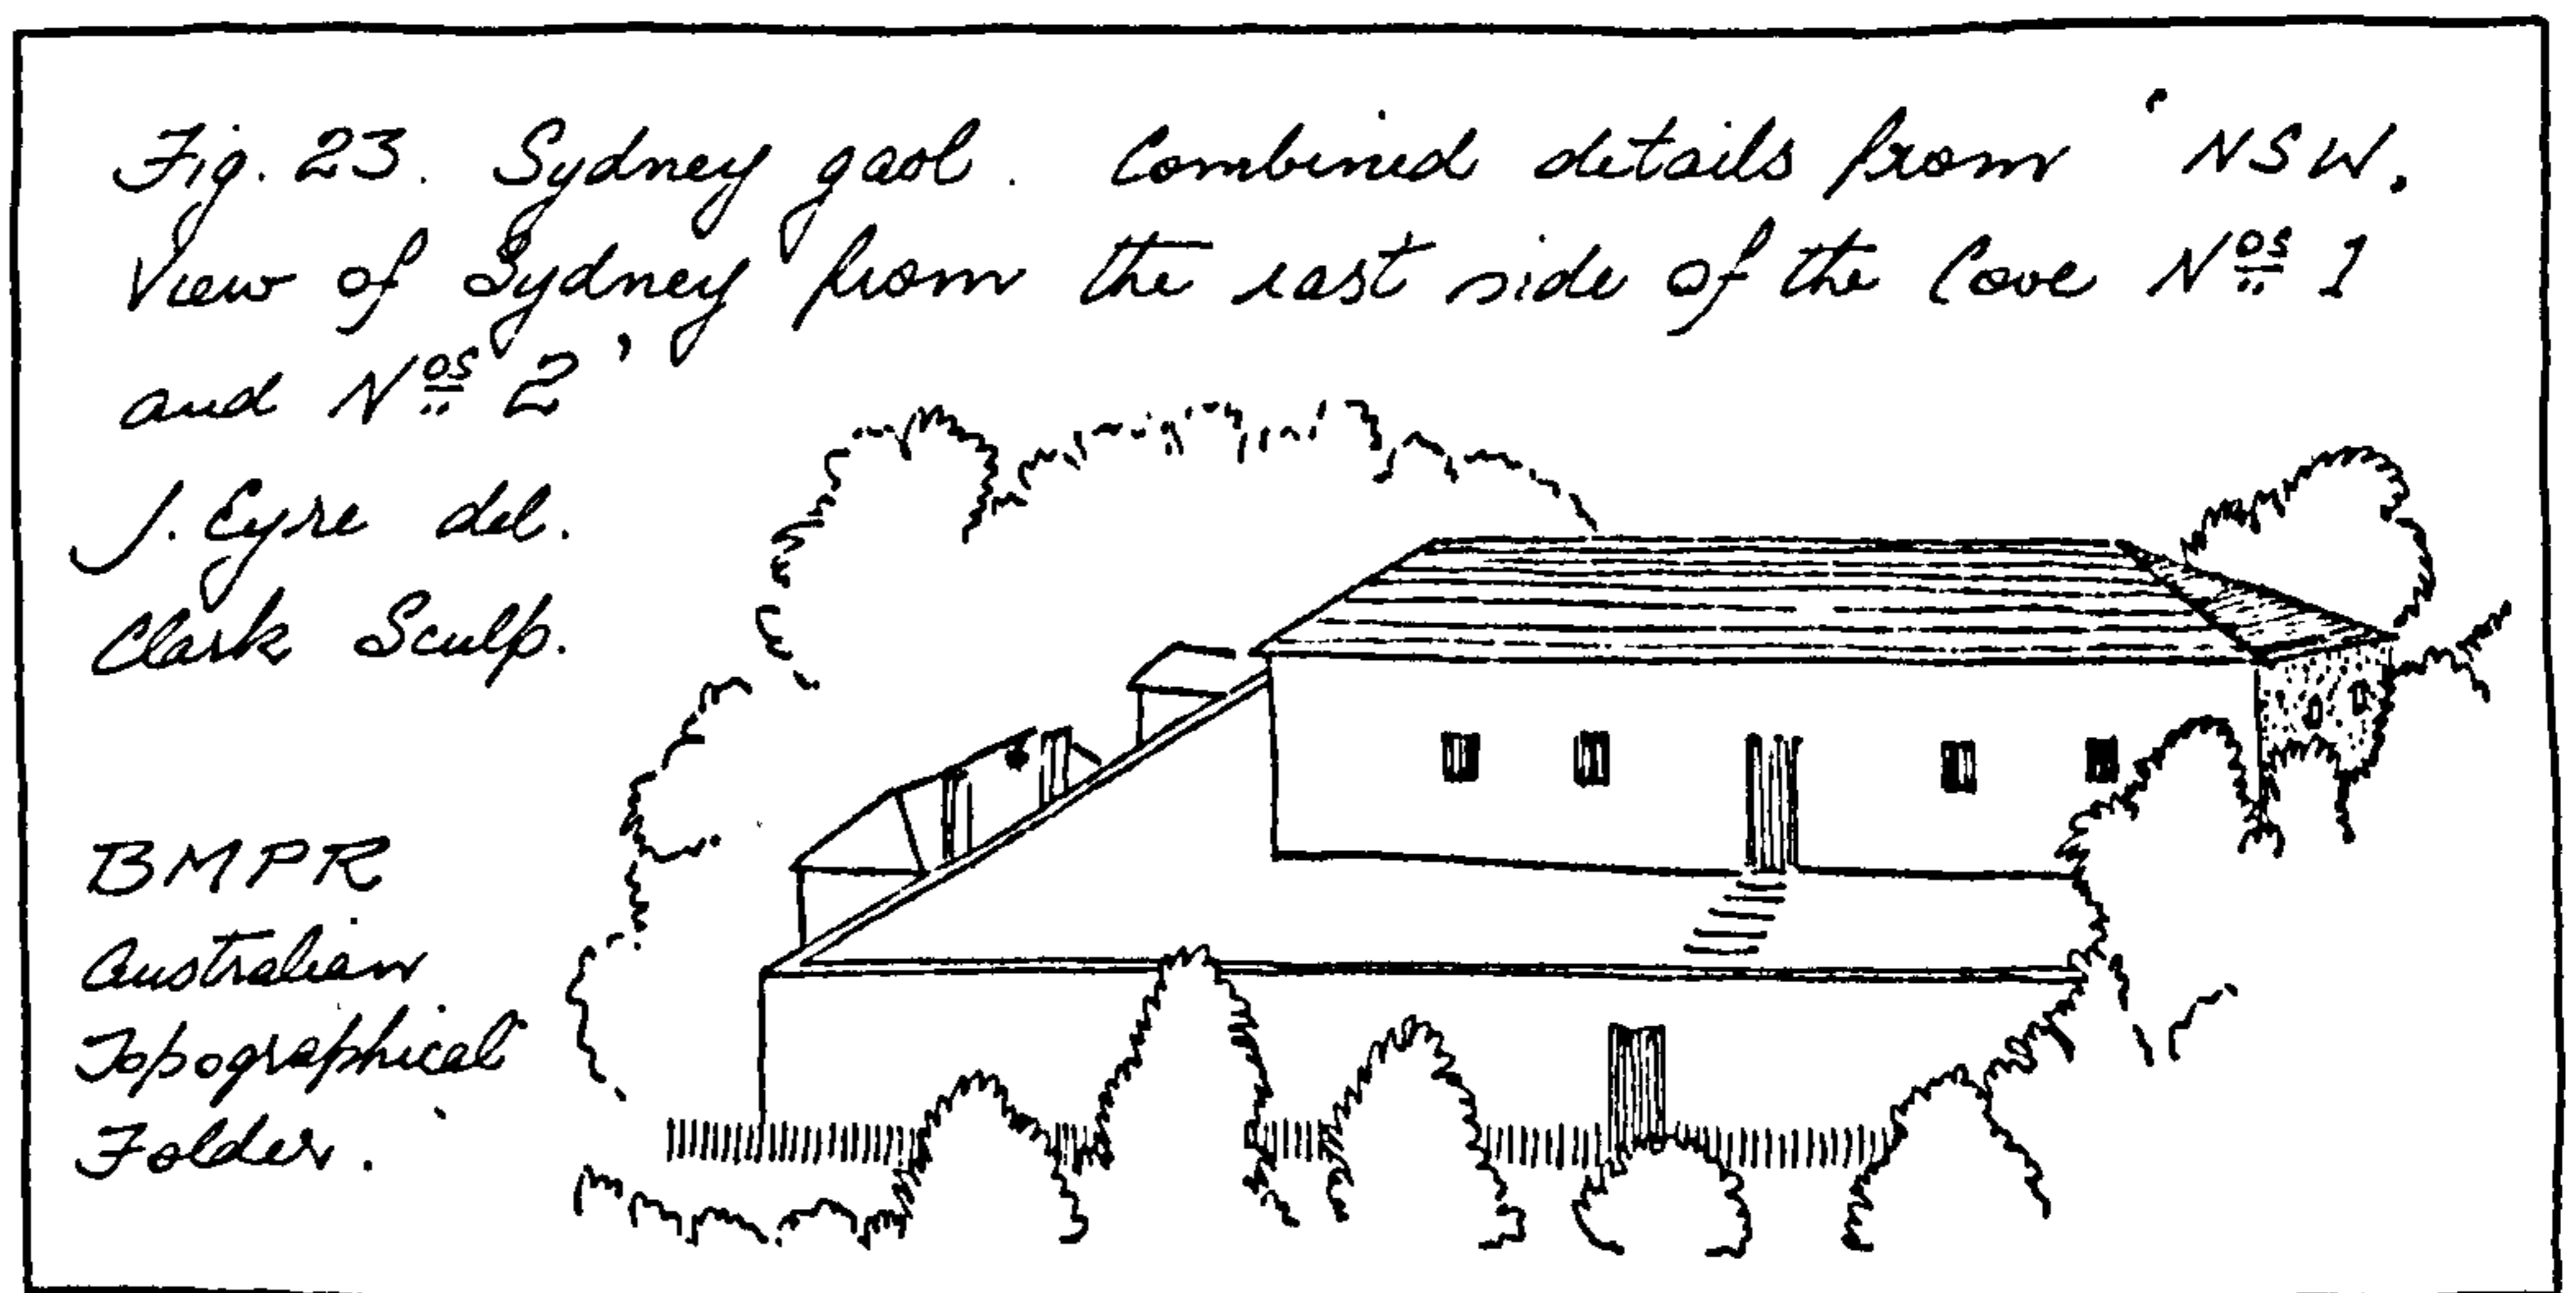 Fig. 23. Sydney gaol. Combined details from 'NSW.
View of Sydney from the east side of the Cove Nos 1
and Nos 2'
J. Eyre del.
Clark Sculp.
BMPR
Australian
Topographical
Folder.